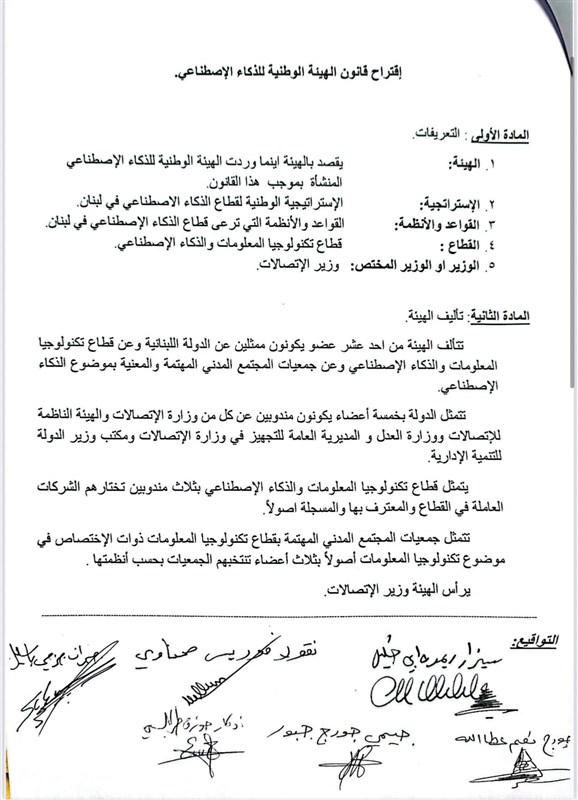 إقتراح قانون الهيئة الوطنية للذكاء الإصطناعي.
المادة الأولى : التعريفات.
١. الهيئة: يقصد بالهيئة اينما وردت الهيئة الوطنية للذكاء الإصطناعي
المنشأة بموجب هذا القانون.
٢. الإستراتجية: الإستراتيجية الوطنية لقطاع الذكاء الاصطناعي في لبنان.
٣. القواعد والأنظمة: القواعد والأنظمة التي ترعى قطاع الذكاء الإصطناعي في لبنان.
٤. القطاع : قطاع تكنولوجيا المعلومات والذكاء الإصطناعي.
٥. الوزير او الوزير المختص: وزير الإتصالات.
المادة الثانية: تأليف الهيئة.
تتألف الهيئة من احد عشر عضو يكونون ممثلين عن الدولة اللبنانية وعن قطاع تكنولوجيا
المعلومات والذكاء الإصطناعي وعن جمعيات المجتمع المدني المهتمة والمعنية بموضوع الذكاء
الإصطناعي.
تتمثل الدولة بخمسة أعضاء يكونون مندوبين عن كل من وزارة الإتصالات والهيئة الناظمة
للإتصالات ووزارة العدل و المديرية العامة للتجهيز في وزارة الإتصالات ومكتب وزير الدولة
للتنمية الإدارية.
يتمثل قطاع تكنولوجيا المعلومات والذكاء الإصطناعي بثلاث مندوبين تختارهم الشركات
العاملة في القطاع والمعترف بها والمسجلة اصولاً.
تتمثل جمعيات المجتمع المدني المهتمة بقطاع تكنولوجيا المعلومات ذوات الإختصاص في
موضوع تكنولوجيا المعلومات أصولاً بثلاث أعضاء تنتخبهم الجمعيات بحسب أنظمتها .
يرأس الهيئة وزير الإتصالات.
التواقيع:
سيزار ريمون ابي خليل
نقولا صحناوي
جورج نعيم عطاالله
جيمي جورج جبور
ادكار جوزف طرابلسي